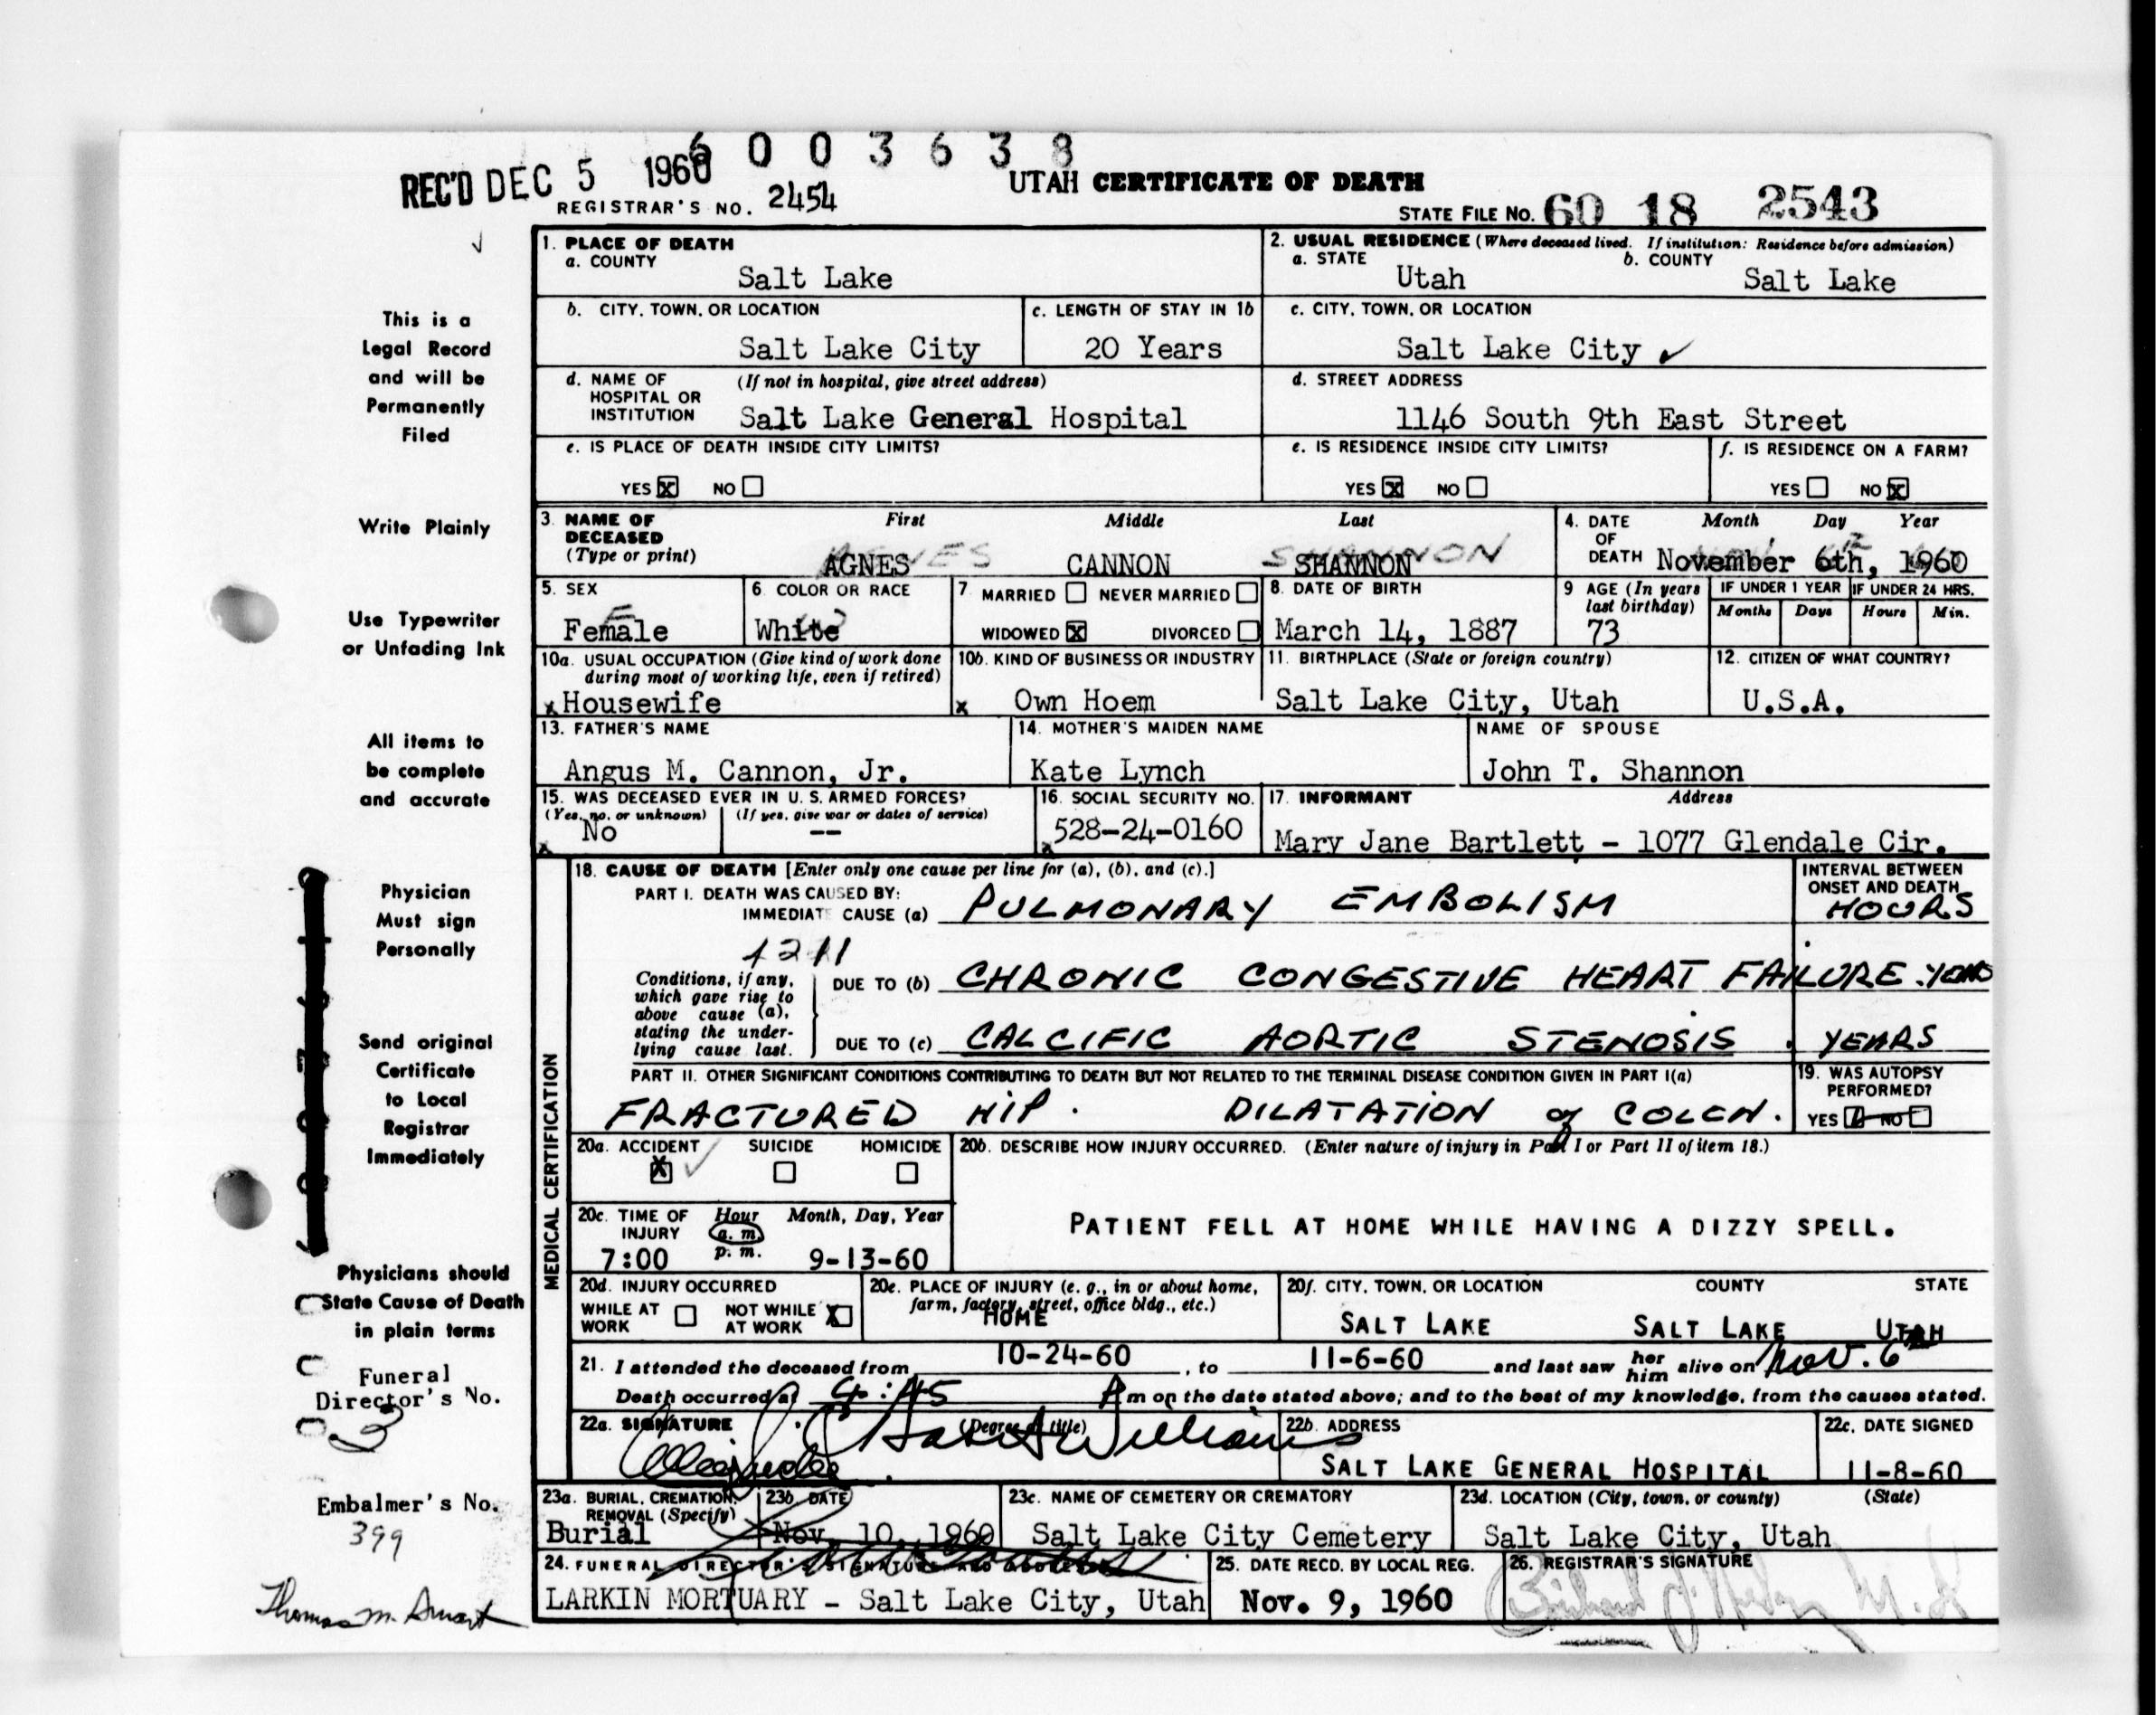 6003638
REC'D DEC 5 1960
UTAH CERTIFICATE OF DEATH
REGISTRAR'S NO. 2454
STATE FILE NO. 60 18 2543
This is a
Legal Record
and will be
Permanently
Filed
Write Plainly
Use Typewriter
or Unfading Ink
All items to
be complete
and accurate
Physician
Must sign
Personally
Send original
Certificate
to Local
Registrar
Immediately
Physicians should
State Cause of Death
in plain terms
Funeral
Director's No.
3
Embalmer's No.
399
Thomas M. Stuart
1. PLACE OF DEATH
a. COUNTY
Salt Lake
2. USUAL RESIDENCE (Where deceased lived. If institution: Residence before admission)
a. STATE
Utah
b. COUNTY
Salt Lake
b. CITY, TOWN, OR LOCATION
Salt Lake City
c. LENGTH OF STAY IN 1b
20 Years
c. CITY, TOWN, OR LOCATION
Salt Lake City ✓
d. NAME OF HOSPITAL OR INSTITUTION
(If not in hospital, give street address)
Salt Lake General Hospital
d. STREET ADDRESS
1146 South 9th East Street
e. IS PLACE OF DEATH INSIDE CITY LIMITS?
YES X NO
e. IS RESIDENCE INSIDE CITY LIMITS?
YES X NO
f. IS RESIDENCE ON A FARM?
YES NO X
3. NAME OF DECEASED
(Type or print)
First Middle Last
AGNES CANNON SHANNON
AGNES SHANNON
4. DATE OF DEATH
Month Day Year
November 6th, 1960
5. SEX
Female
F
6. COLOR OR RACE
White
W
7 MARRIED NEVER MARRIED
WIDOWED X DIVORCED
8. DATE OF BIRTH
March 14, 1887
9 AGE (In years last birthday)
73
IF UNDER 1 YEAR
Months Days
IF UNDER 24 HRS.
Hours Min.
10a. USUAL OCCUPATION (Give kind of work done during most of working life, even if retired)
x Housewife
10b. KIND OF BUSINESS OR INDUSTRY
x Own Hoem
11. BIRTHPLACE (State or foreign country)
Salt Lake City, Utah
12. CITIZEN OF WHAT COUNTRY?
U.S.A.
13. FATHER'S NAME
Angus M. Cannon, Jr.
14. MOTHER'S MAIDEN NAME
Kate Lynch
NAME OF SPOUSE
John T. Shannon
15. WAS DECEASED EVER IN U. S. ARMED FORCES?
(Yes, no, or unknown) (If yes, give war or dates of service)
x No --
16. SOCIAL SECURITY NO.
x 528-24-0160
17. INFORMANT Address
Mary Jane Bartlett - 1077 Glendale Cir.
MEDICAL CERTIFICATION
18. CAUSE OF DEATH [Enter only one cause per line for (a), (b), and (c).]
INTERVAL BETWEEN ONSET AND DEATH
PART I. DEATH WAS CAUSED BY:
IMMEDIATE CAUSE (a) PULMONARY EMBOLISM HOURS
4211
Conditions, if any, which gave rise to above cause (a), stating the underlying cause last.
DUE TO (b) CHRONIC CONGESTIVE HEART FAILURE. YEARS
DUE TO (c) CALCIFIC AORTIC STENOSIS. YEARS
PART II. OTHER SIGNIFICANT CONDITIONS CONTRIBUTING TO DEATH BUT NOT RELATED TO THE TERMINAL DISEASE CONDITION GIVEN IN PART I(a)
FRACTURED HIP. DILATATION of COLON.
19. WAS AUTOPSY PERFORMED?
YES NO
20a. ACCIDENT SUICIDE HOMICIDE
X ✓
20b. DESCRIBE HOW INJURY OCCURRED. (Enter nature of injury in Part I or Part II of item 18.)
PATIENT FELL AT HOME WHILE HAVING A DIZZY SPELL.
20c. TIME OF INJURY
Hour Month, Day, Year
a. m.
p. m.
7:00 9-13-60
20d. INJURY OCCURRED
WHILE AT WORK NOT WHILE AT WORK X
20e. PLACE OF INJURY (e. g., in or about home, farm, factory, street, office bldg., etc.)
HOME
20f. CITY, TOWN, OR LOCATION COUNTY STATE
SALT LAKE SALT LAKE UTAH
21. I attended the deceased from 10-24-60, to 11-6-60 and last saw her him alive on Nov. 6
Death occurred at 4:45 A m on the date stated above; and to the best of my knowledge, from the causes stated.
22a. SIGNATURE (Degree or title)
Williams
22b. ADDRESS
SALT LAKE GENERAL HOSPITAL
22c. DATE SIGNED
11-8-60
23a. BURIAL, CREMATION, REMOVAL (Specify)
Burial
23b. DATE
Nov. 10, 1960
23c. NAME OF CEMETERY OR CREMATORY
Salt Lake City Cemetery
23d. LOCATION (City, town, or county) (State)
Salt Lake City, Utah
24. FUNERAL DIRECTOR'S SIGNATURE AND ADDRESS
LARKIN MORTUARY - Salt Lake City, Utah
25. DATE RECD. BY LOCAL REG.
Nov. 9, 1960
26. REGISTRAR'S SIGNATURE